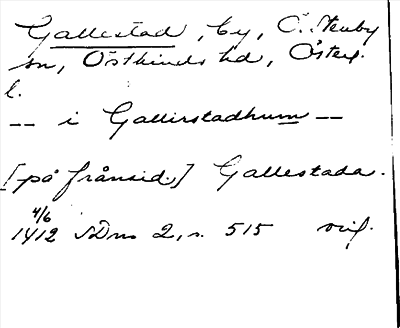 Gallestad, by, Ö. Stenby
sn, Östkinds hd, Österg.
l.
-- i Gallirstadhum --
[på frånsid.] Gallestada.
4/6
1412 SDns 2, s. 515 orig.